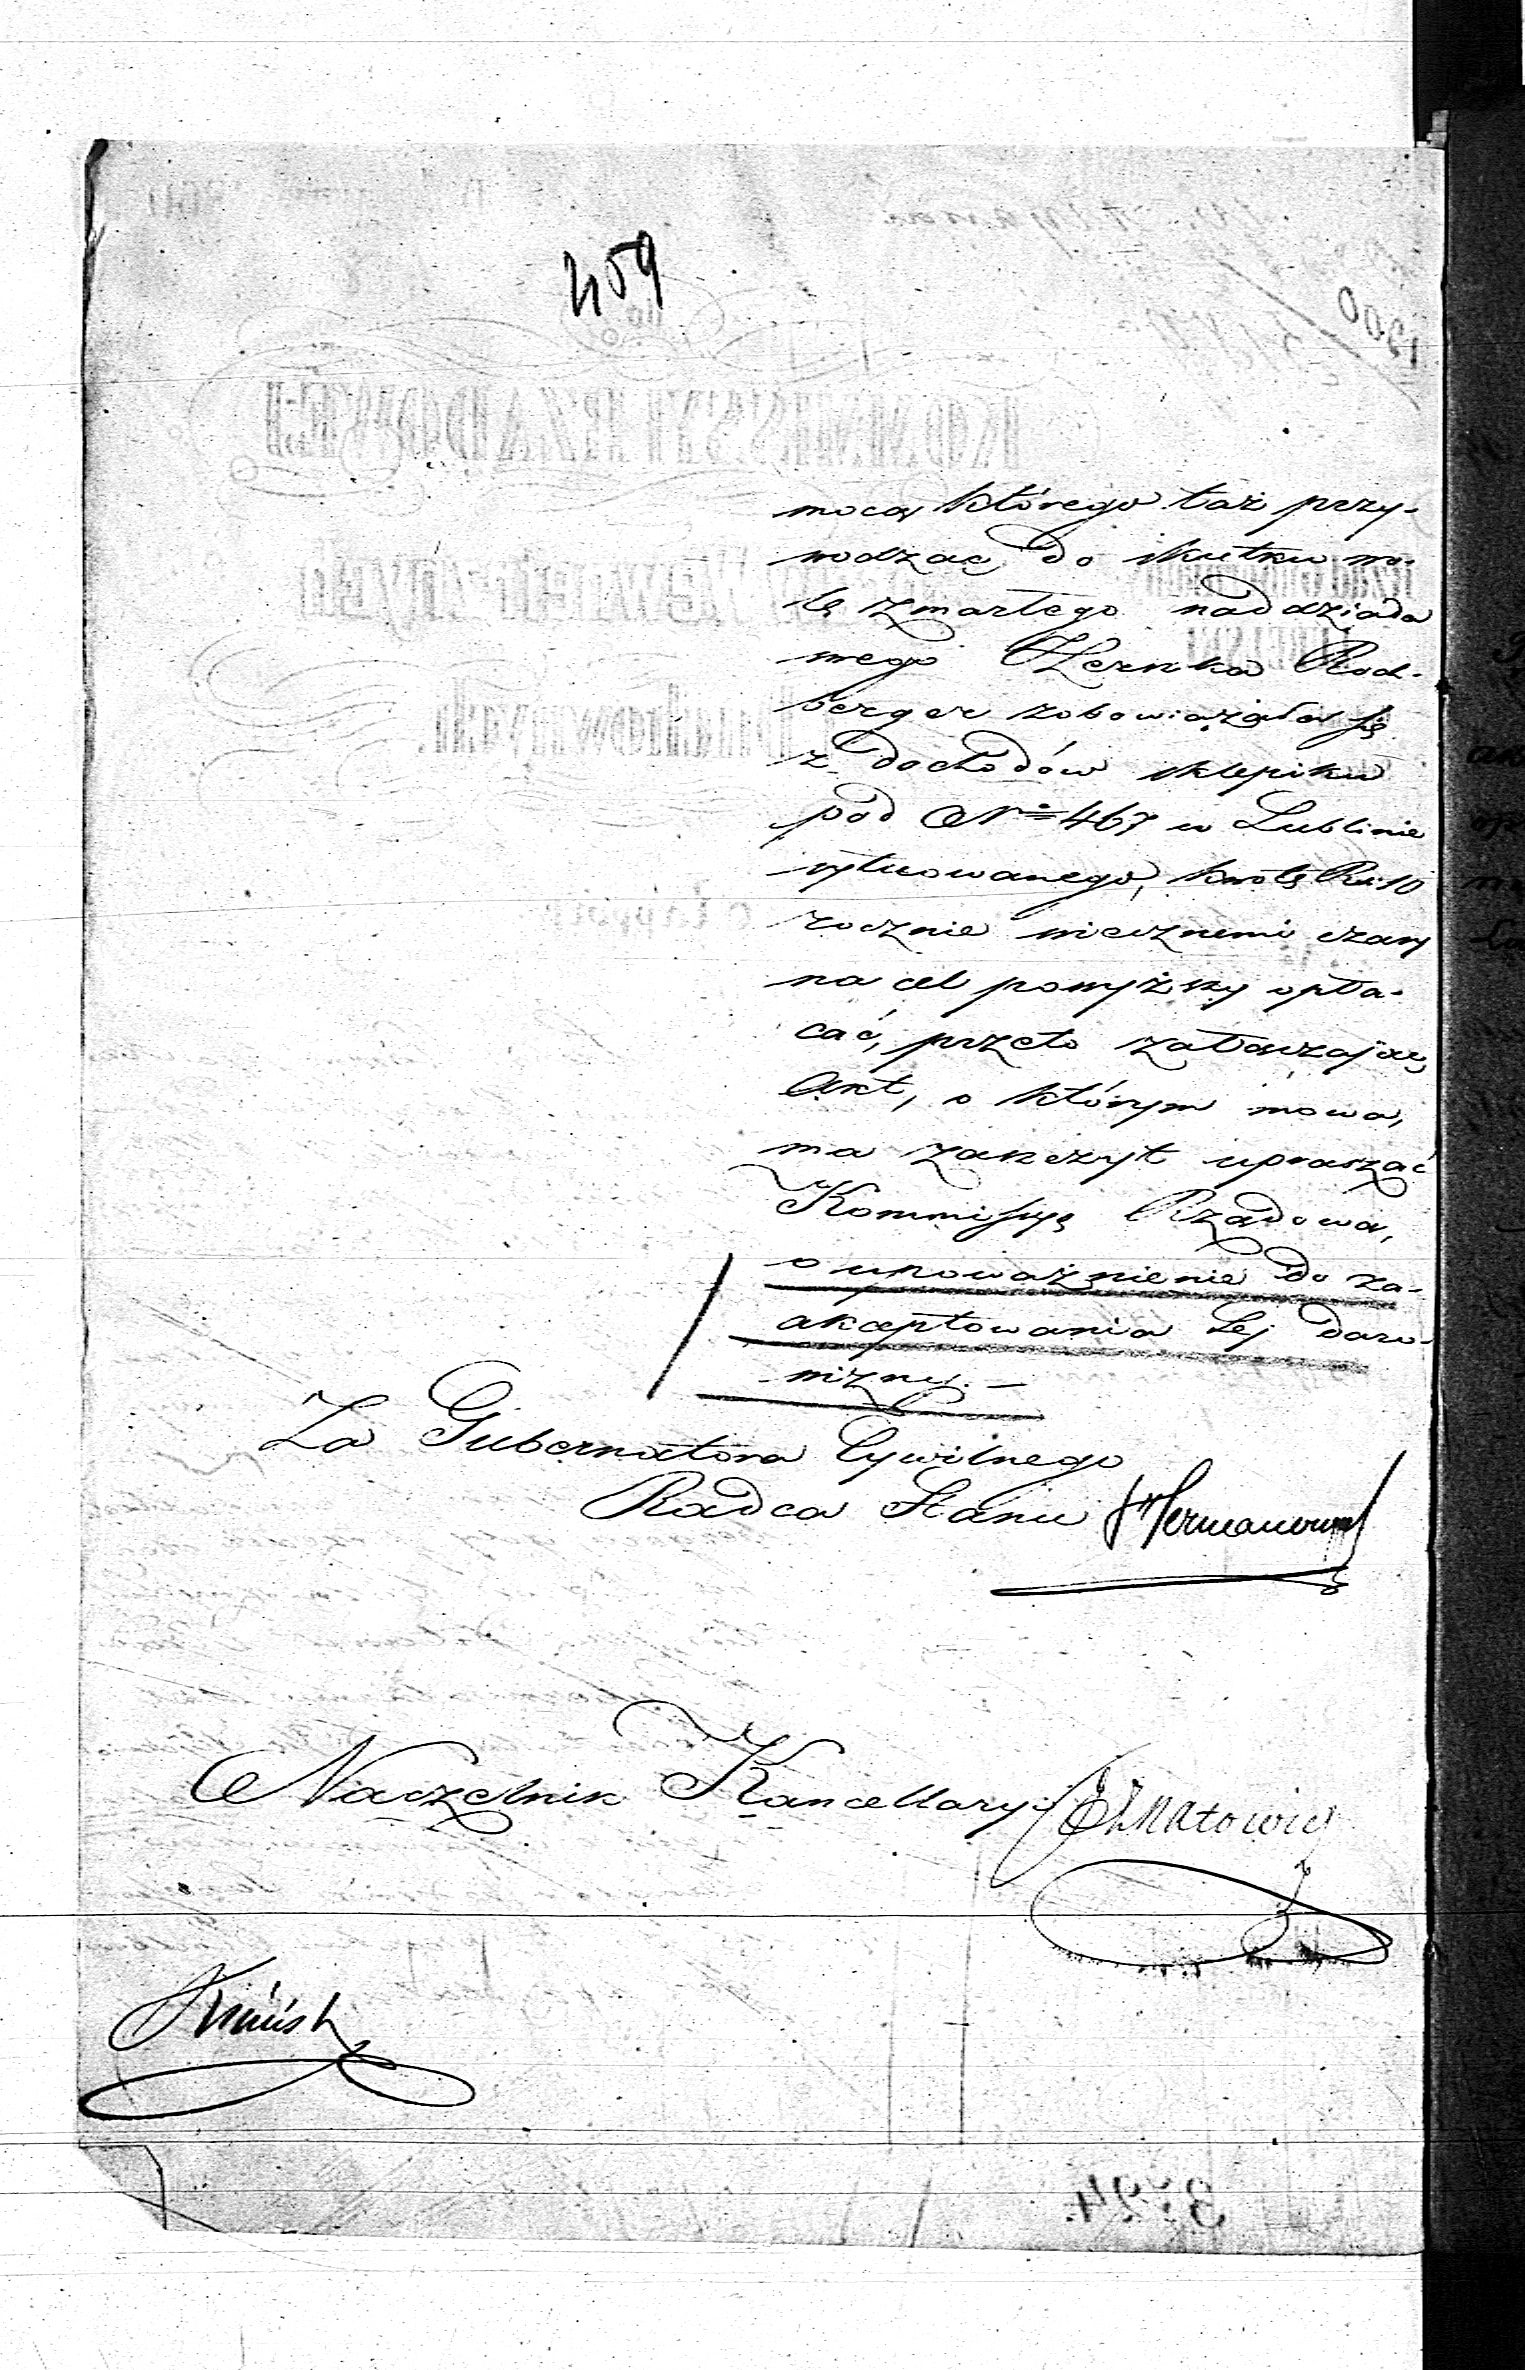 459
mocą którego taż przy-
wodząc do skutku wo-
lę zmarłego naddziada
swego Herszka Rod-
berger zobowiązała się
z dochodów sklepiku
pod No 467 w Lublinie
sytuowanego, kwotę Rs: 10
rocznie wiecznemi czasy
na cel powyższy opła-
cać, przeto załączając
Akt, o którym mowa,
ma zaszczyt upraszać
Kommissyę Rządową,
o upoważnienie do za-
akceptowania tej daro-
wizny. —
Za Gubernatora Cywilnego
Radca Stanu
Naczelnik Kancellaryi